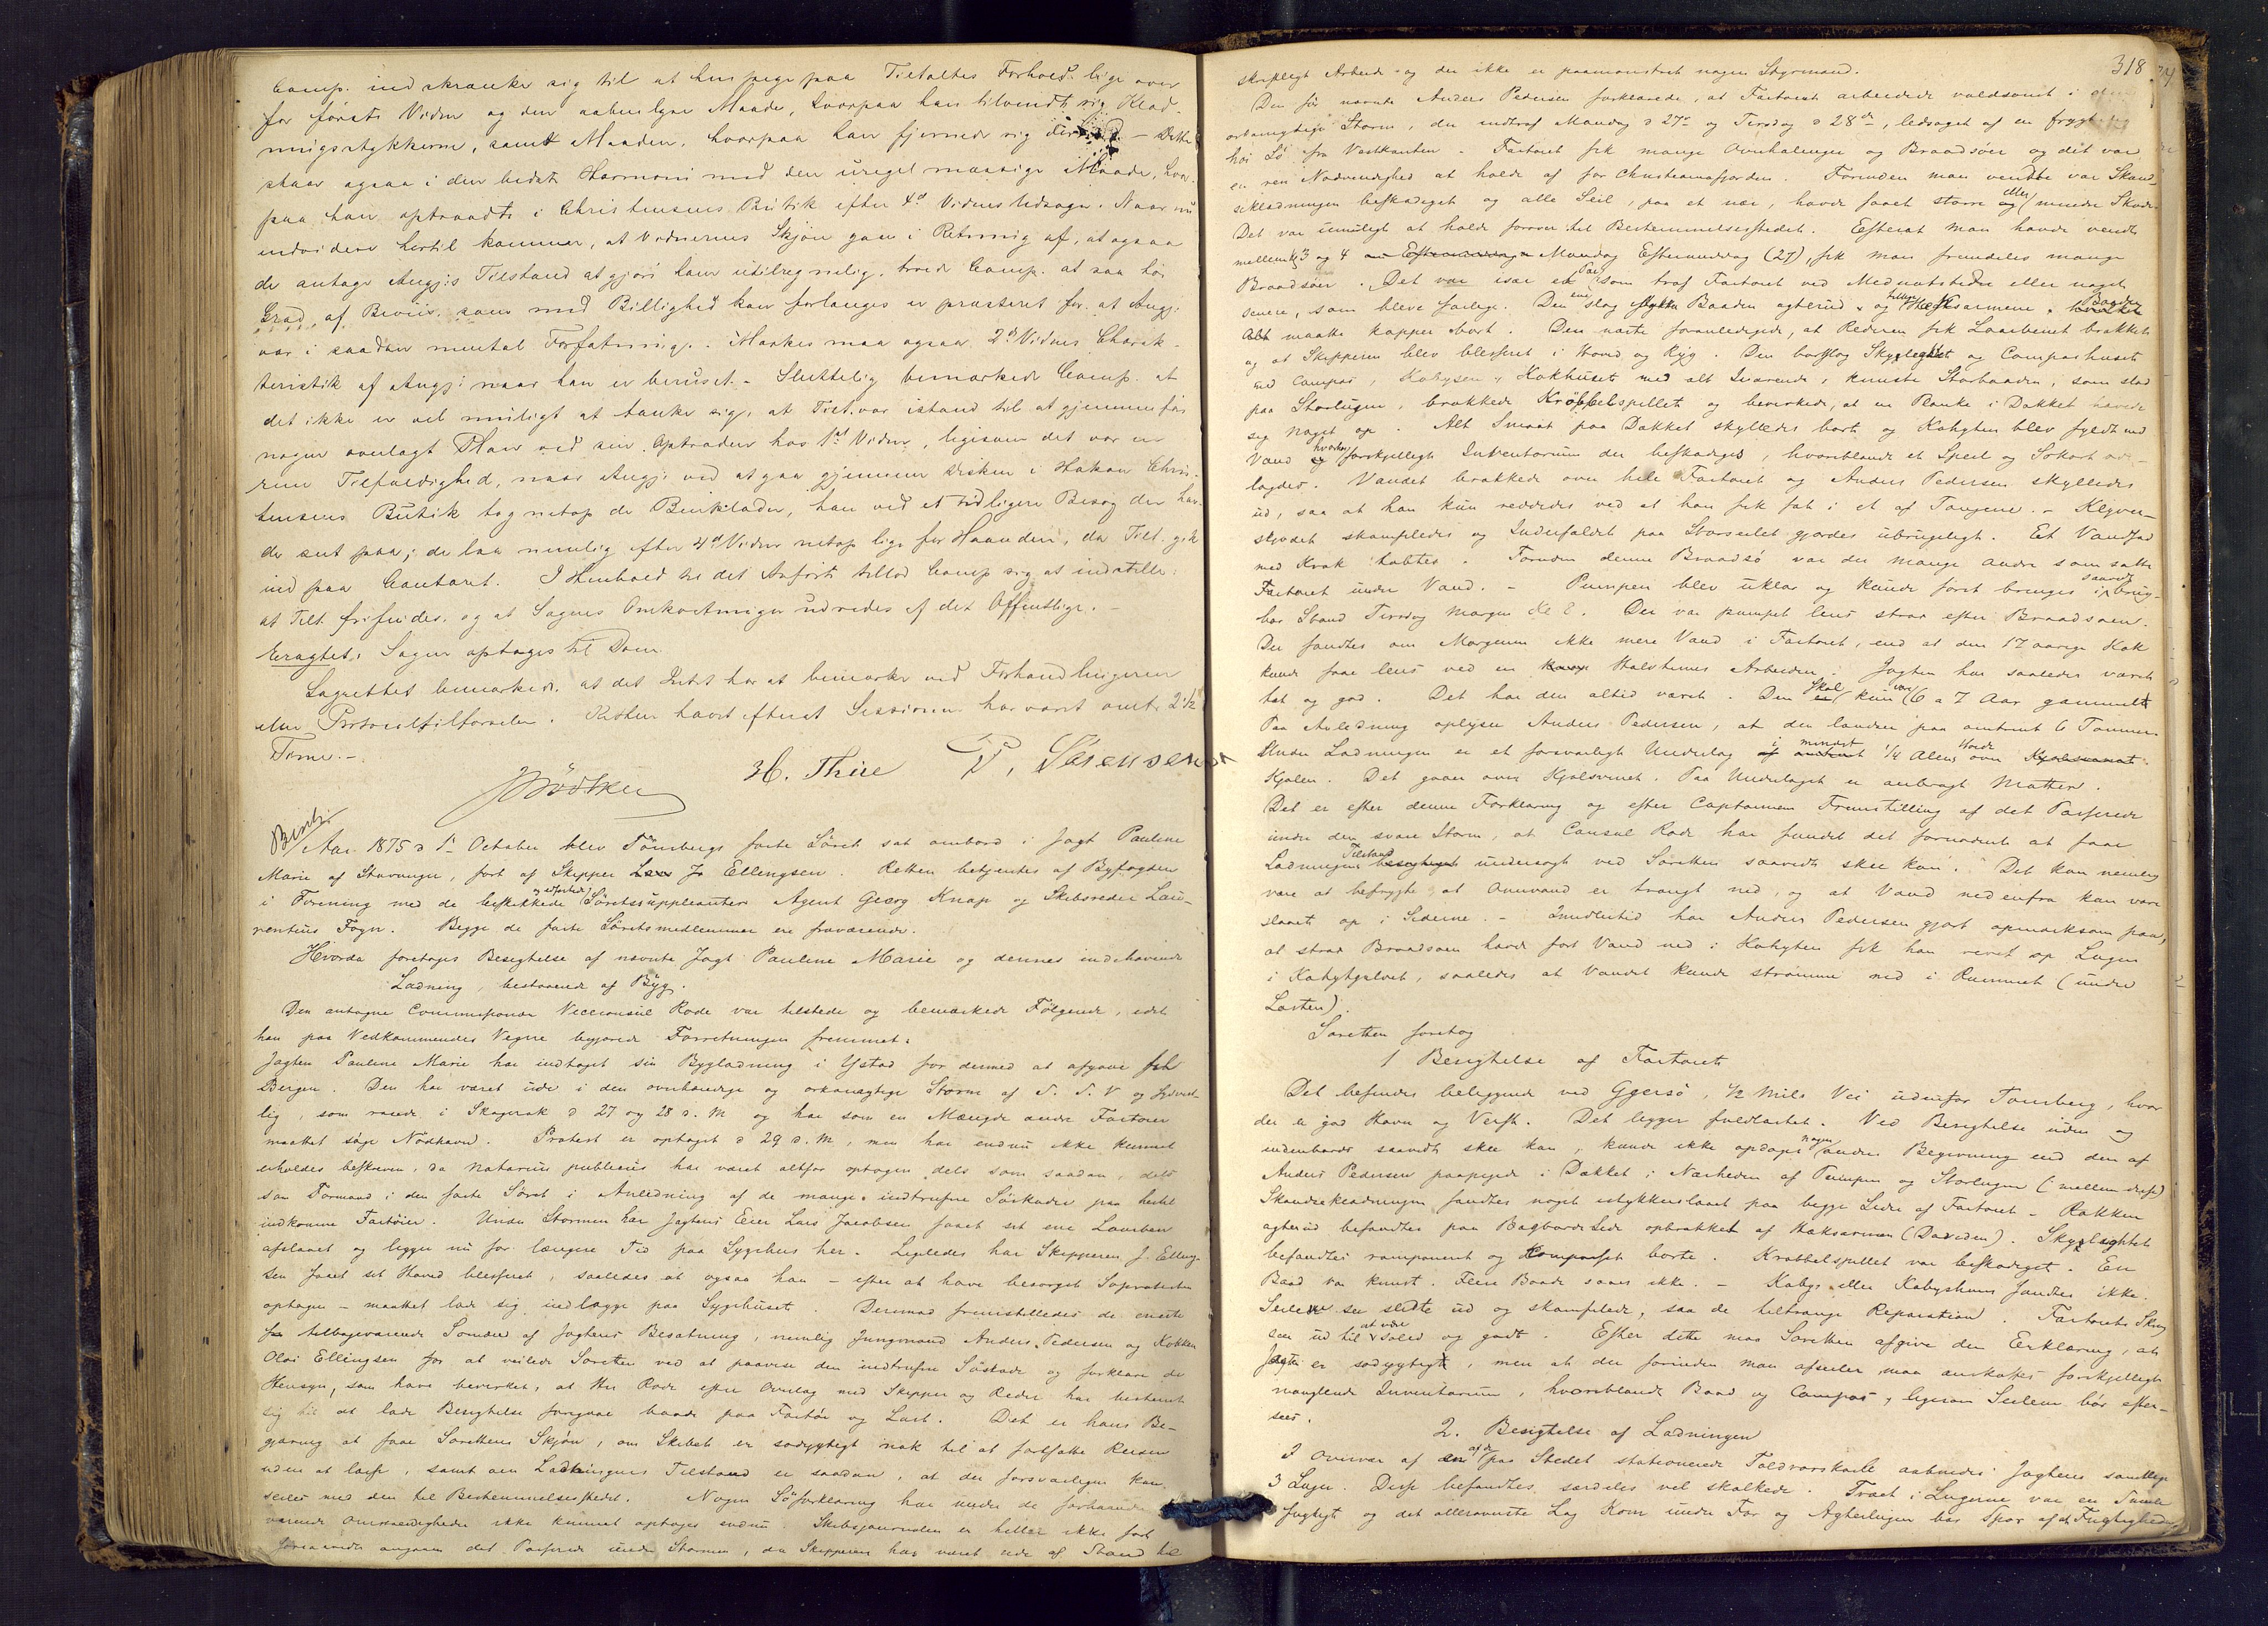 Comp. indskrænke sig til at henpege paa Tiltaltes Forhold lige over
for første Vidne og den aabenlyse Maade, hvorpaa han tilvendte sig Klæd-
ningsstykkerne, samt Maaden, hvorpaa han fjernede sig - Dette
staar ogsaa i den bedste Harmoni med den uregelmæssige Maade, hvor-
paa han optraadte i Christensens Butik efter 4de Vidnes Udsagn. Naar nu
endvidere hertil kommer, at Vidnernes Skjøn gaa i Retning af, at ogsaa
de antage Angj:s Tilstand at gjøre ham utilregnelig, troede Comp. at saa høi
Grad af Beviis, som med Billighed kan forlanges er præsteret for, at Angj:
var i saadan mental Forfatning. Mærkes maa ogsaa 2det Vidnes Charak-
teristik af Angj: naar han er beruset. - Sluttelig bemærkede Comp. at
det ikke er vel muligt at tænke sig, at Tilt. var istand til at gjennemføre
nogen overlagt Plan ved sin Optræden hos 1ste Vidne, ligesom det var en
ren Tilfældighed, naar Angj: ved at gaa gjennem Disken i Hakon Chris-
tensens Butik tog netop de Benklæder, han ved et tidligere Besøg der hav-
de set paa; de laa nemlig efter 4de Vidne netop lige for Haanden, da Tilt. gik
ind paa Contoret. I Henhold til det Anførte tillod Comp sig at indstille:
at Tilt. frifindes, og at Sagens Omkostninger udredes af det Offentlige. -
Eragtet: Sagen optages til Dom.
Lagrettet bemærkede, at det Intet har at bemærke ved Forhandlingerne
eller Protocoltilførselen. Retten hævet efterat Sessionen har varet omtr. 2 1/2
Time. -
JBødtker H. Thiie P. Sørensen
Aar 1875 d 1ste October blev Tønsbergs faste Søret sat ombord i Jagt Pauline
Marie af Stavanger, ført af Skipper J. Ellingsen. Retten betjentes af Byfogden
i Forening med de beskikkede og edfæstede Søretssuppleanter Agent Georg Knap og Skibsreder Lau-
rentius Føyn. Begge de faste Søretsmedlemmer ere fraværende.
Hvorda foretoges Besigtelse af nævnte Jagt Pauline Marie og dennes indehavende
Ladning, bestaaende af Byg.
Den antagne Commissionær Viceconsul Rode var tilstede og bemærkede Følgende, idet
han paa Vedkommendes Vegne begjærede Forretningen fremmet:
Jagten Pauline Marie har indtaget sin Bygladning i Ystad for dermed at afgaae til
Bergen. Den har været ude i den overhændige og orkanagtige Storm af S. S. V og Sydvest-
lig, som rasede i Skagerak d 27 og 28 d. M og har som en Mængde andre Fartøier
maattet søge Nødhavn. Protest er optaget d 29 d. M, men har endnu ikke kunnet
erholdes beskreven, da Notarius publicus har været altfor optagen dels som saadan, dels
som Formand i den faste Søret i Anledning af de mange indtrufne Søskader paa hertil
indkomne Fartøier. Under Stormen har Jagtens Eier Lars Jacobsen faaet sit ene Laarben
afslaaet og ligger nu for længere Tid paa Sygehus her. Ligeledes har Skipperen J. Elling-
sen faaet sit Hoved blesseret, saaledes at ogsaa han - efter at have besørget Søprotesten
optagen - maattet lade sig indlægge paa Sygehuset. Derimod fremstilledes de eneste
tilbageværende Sømænd af Jagtens Besætning, nemlig Jungmand Anders Pedersen og Kokken
Olai Ellingsen for at veilede Søretten ved at paavise den indtrufne Søskade og forklare de
Hensyn, som have bevirket, at Hr. Rode efter Overlæg med Skipper og Reder har bestemt
sig til at lade Besigtelse foregaae baade paa Fartøi og Last. Det er hans Be-
gjæring at faae Sørettens Skjøn, om Skibet er sødygtigt nok til at fortsætte Reisen
uden at losse, samt om Ladningens Tilstand er saadan, at der forsvarligen kan
seiles med den til Bestemmelsesstedet. Nogen Søforklaring har under de forhaanden
værende Omstændigheder ikke kunnet optages endnu. Skibsjournalen er heller ikke ført
forsaavidt angaaer det Passerede under Stormen, da Skipperen har været ude af Stand til
318
skriftligt Arbeide og der ikke er paamønstret nogen Styrmand.
Den før nævnte Anders Pedersen forklarede, at Fartøiet arbeidede voldsomt i den
orkanagtige Storm, der indtraf Mandag d 27de og Tirsdag d 28de, ledsaget af en frygtelig
høi Sø fra Vestkanten. Fartøiet fik mange Overhalinger og Braadsøer og det var
en ren Nødvendighed at holde af for Christianiafjorden. Forinden man vendte var Skand-
sekledningen beskadiget og alle Seil, paa et nær, havde faaet større eller mindre Skade.
Det var umuligt at holde forover til Bestemmelsesstedet. Efterat man havde vendt
mellem kl 3 og 4 Mandag Eftermiddag (27), fik man fremdeles mange
Braadsøer. Det var især et Par, som traf Fartøiet ved Midnatstider eller noget
senere, som bleve farlige. Den ene slog Baaden agterud og tillige Hæksarmene. Baaden
maatte kappes bort. Den næste foranledigede, at Rederen fik Laarbenet brækket
og at Skipperen blev blesseret i Hoved og Ryg. Den bortslog Skyglightet og Compashuset
med Compas, Kabysen, Kokhuset med alt Iværende, knuste Storbaaden, som stod
paa Storlugen, brækkede Krøbbelspillet og bevirkede, at en Planke i Dækket hævede
sig noget op. Alt Smaat paa Dækket skylledes bort og Kahyten blev fyldt med
Vand hvorhos forskjelligt Inventarium der beskadiges, hvoriblandt et Speil og Søkart øde-
lagdes. Vandet brækkede over hele Fartøiet og Anders Pedersen skylledes
ud, saa at han kun reddedes ved at han fik fat i et af Tougene. - Klyver-
skjødet skamfiledes og Inderfaldet paa Storseilet gjordes ubrugeligt. Et Vandfad
med Krak tabtes. Foruden denne Braadsø var der mange andre som satte
Fartøiet under Vand. - Pumpen blev uklar og kunde først bringes i brug-
bar Stand Tirsdag Morgen Kl 8. Der var pumpet lens strax efter Braadsøen.
Der fandtes om Morgenen ikke mere Vand i Fartøiet, end at den 17 aarige Kok
kunde faae lens ved en Halvtimes Arbeiden. Jagten har saaledes været
tæt og god. Det har den altid været. Den skal kun være 6 a 7 Aar gammel
Paa Anledning oplyser Anders Pedersen, at der landes paa omtrent 6 Tommer
Under Ladningen er et forsvarligt Underlag i mindst 1/4 Alens Høide over
Kjølen. Det gaaer over Kjølsvinet. Paa Underlaget er anbragt Matter.
Det er efter denne Forklaring og efter Captainens Fremstilling af det Passerede
under den svære Storm, at Consul Rode har fundet det fornødent at faae
Ladningens Tilstand undersøgt ved Søretten saavidt skee kan. Det kan nemlig
være at befrygte at Overvand er trængt ned, og at Vand nedenfra kan være
slaaet op i Siderne. - Imidlertid har Anders Pedersen gjort opmærksom paa,
at strax Braadsøen havde ført Vand ned i Kahyten fik han revet op Lugen
i Kahytgulvet, saaledes at Vandet kunde strømme ned i Rummet (under
Lasten).
Søretten foretog
1 Besigtelse af Fartøiet
Det befindes beliggende ved Ggersø, 1/2 Mils Vei udenfor Tønsberg, hvor
der er god Havn og Verft. Det ligger fuldlastet. Ved Besigtelse uden og
indenbords saavidt skee kan, kunde ikke opdages nogen anden Begivning end den af
Anders Pedersen paapegede i Dækket i Nærheden af Pumpen og Storlugen (imellem disse)
Skandseklædningen fandtes noget istykkerslaaet paa begge Sider af Fartøiet - Rækken
agterud befandtes paa Bagbords Side opbrækket af Hæksarmen (Daviden). Skyglightet
befandtes ramponeret og Kompasset borte. Krøbbelspillet var beskadiget. En
Baad var knust. Flere Baade saaes ikke. - Kabys eller Kabyshuus fandtes ikke.
Seilene see slidte ud og skamfilede, saa de tiltrænge Reparation. Fartøiets Skrog
seer ud til at være solid og godt. Efter dette maa Søretten afgive den Erklæring, at
Jagten er sødygtigt, men at der forinden man afseiler, maa anskaffes forskjelligt
manglende Inventarium, hvoriblandt Baad og Compas, ligesom Seilene bør efter-
sees.
2. Besigtelse af Ladningen
I Overvær af en af de paa Stedet stationerede Toldvæsenskarle aabnedes Jagtens samtlige
3 Luger. Disse befandtes særdeles vel skalkede. Træet i Lugerne var en Smule
fugtigt og det alleroverste Lag Korn under For og Agterlugen bar Spor af Fugtighed